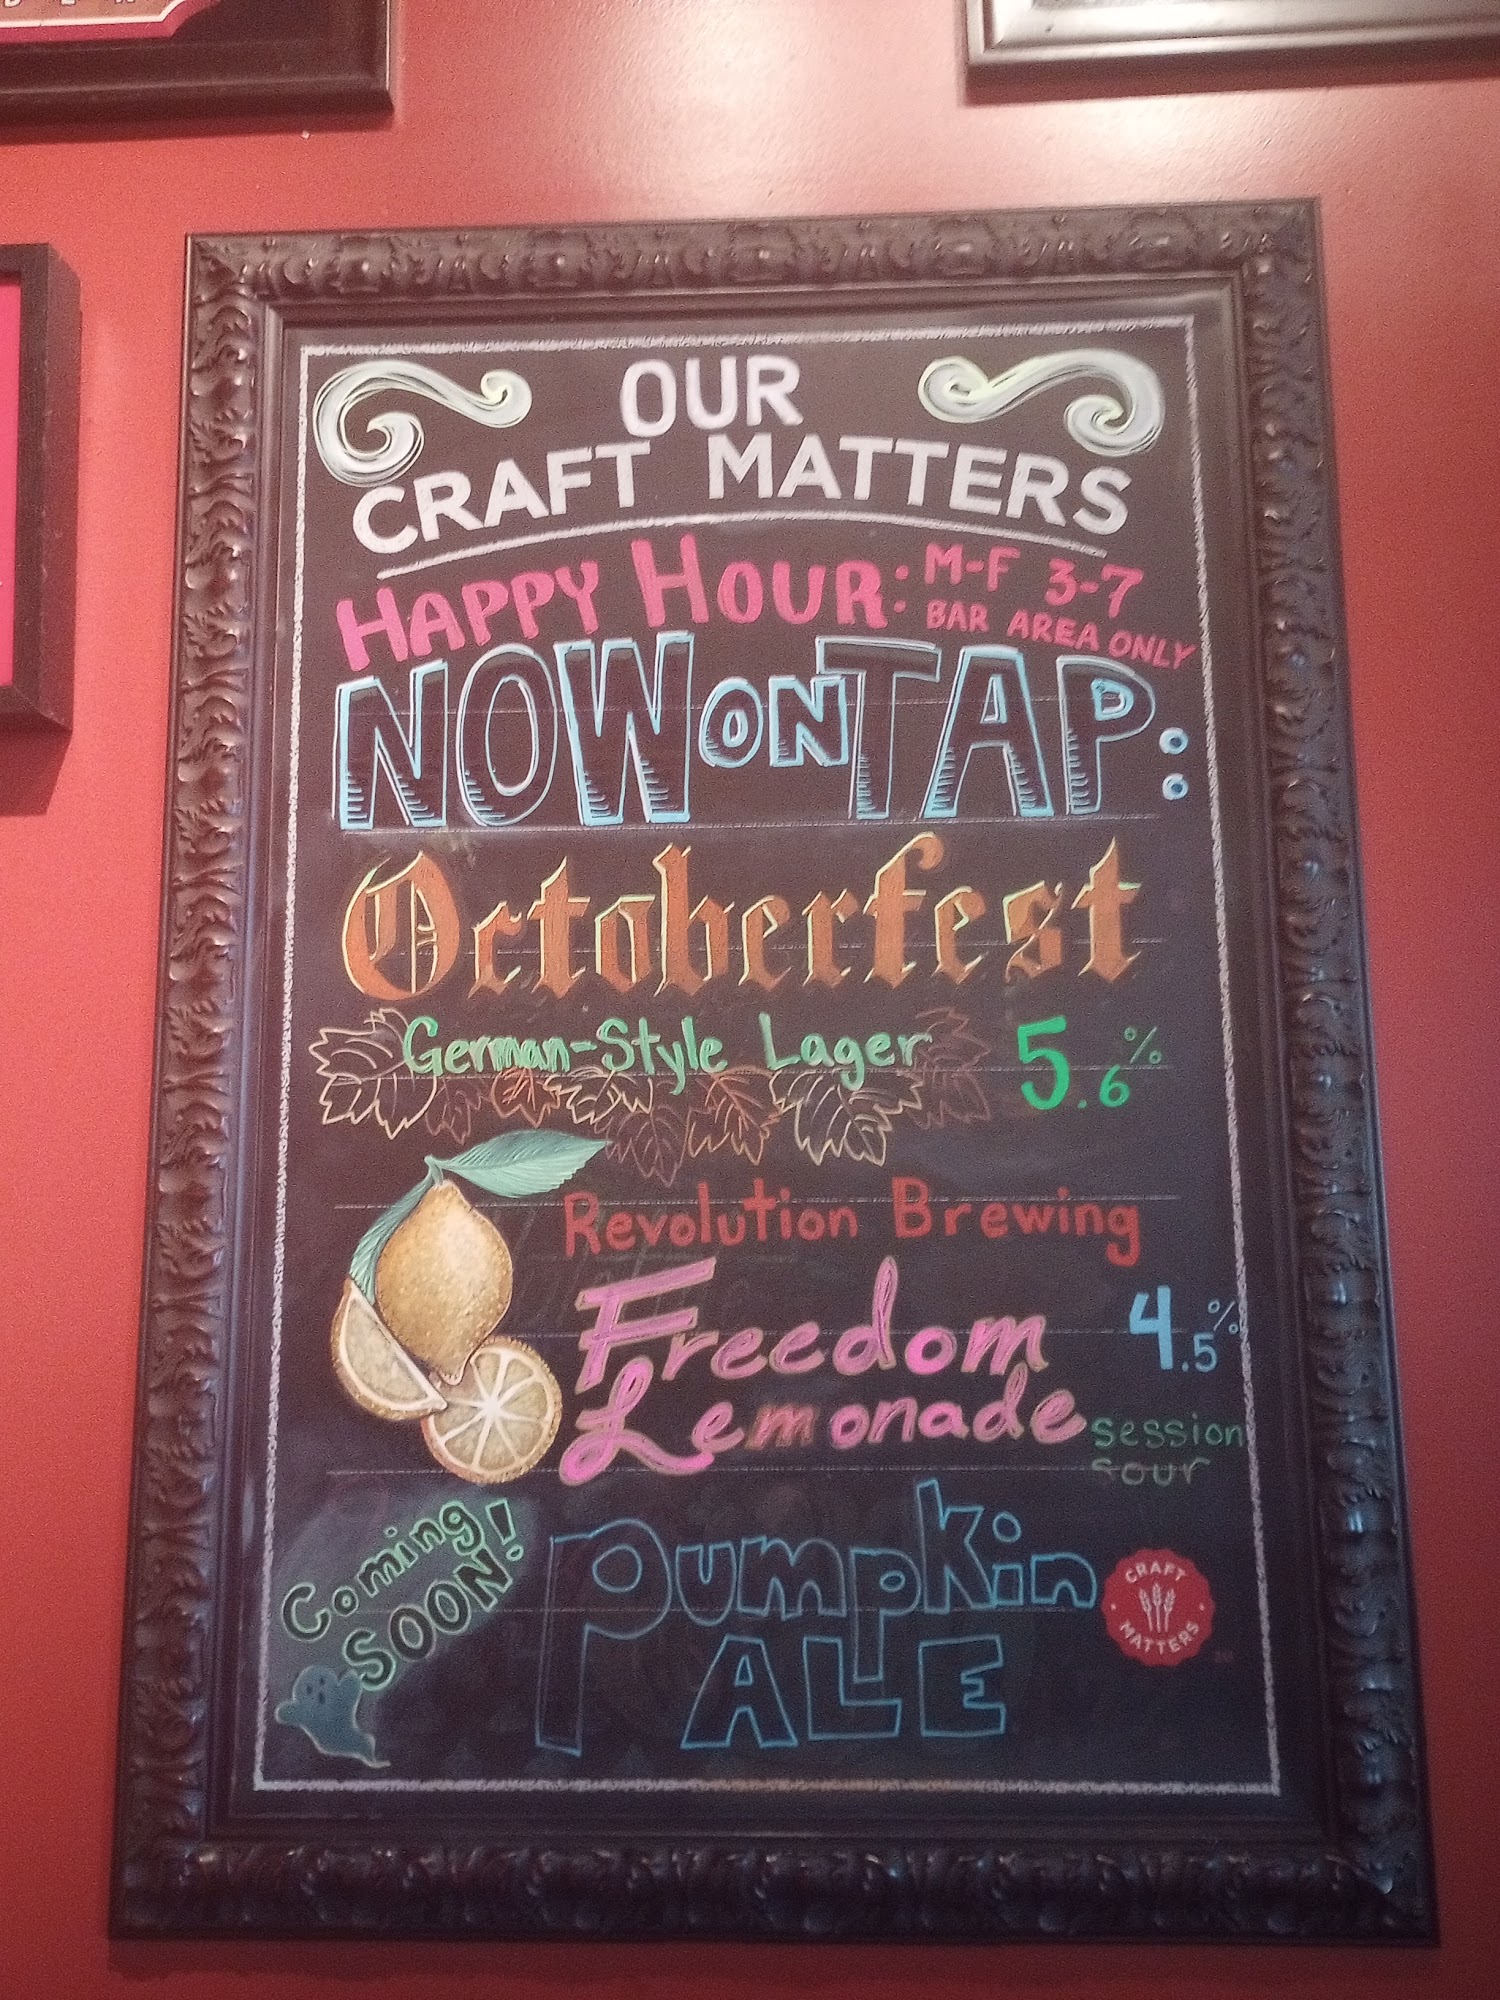 OUR
CRAFT MATTERS
HAPPY HOUR: M-F 3-7
BAR AREA ONLY
NOW ON TAP:
Octoberfest
German-Style Lager 5.6%
Revolution Brewing
Freedom 4.5%
Lemonade session
sour
Coming
SOON!
Pumpkin
ALE
CRAFT
MATTERS